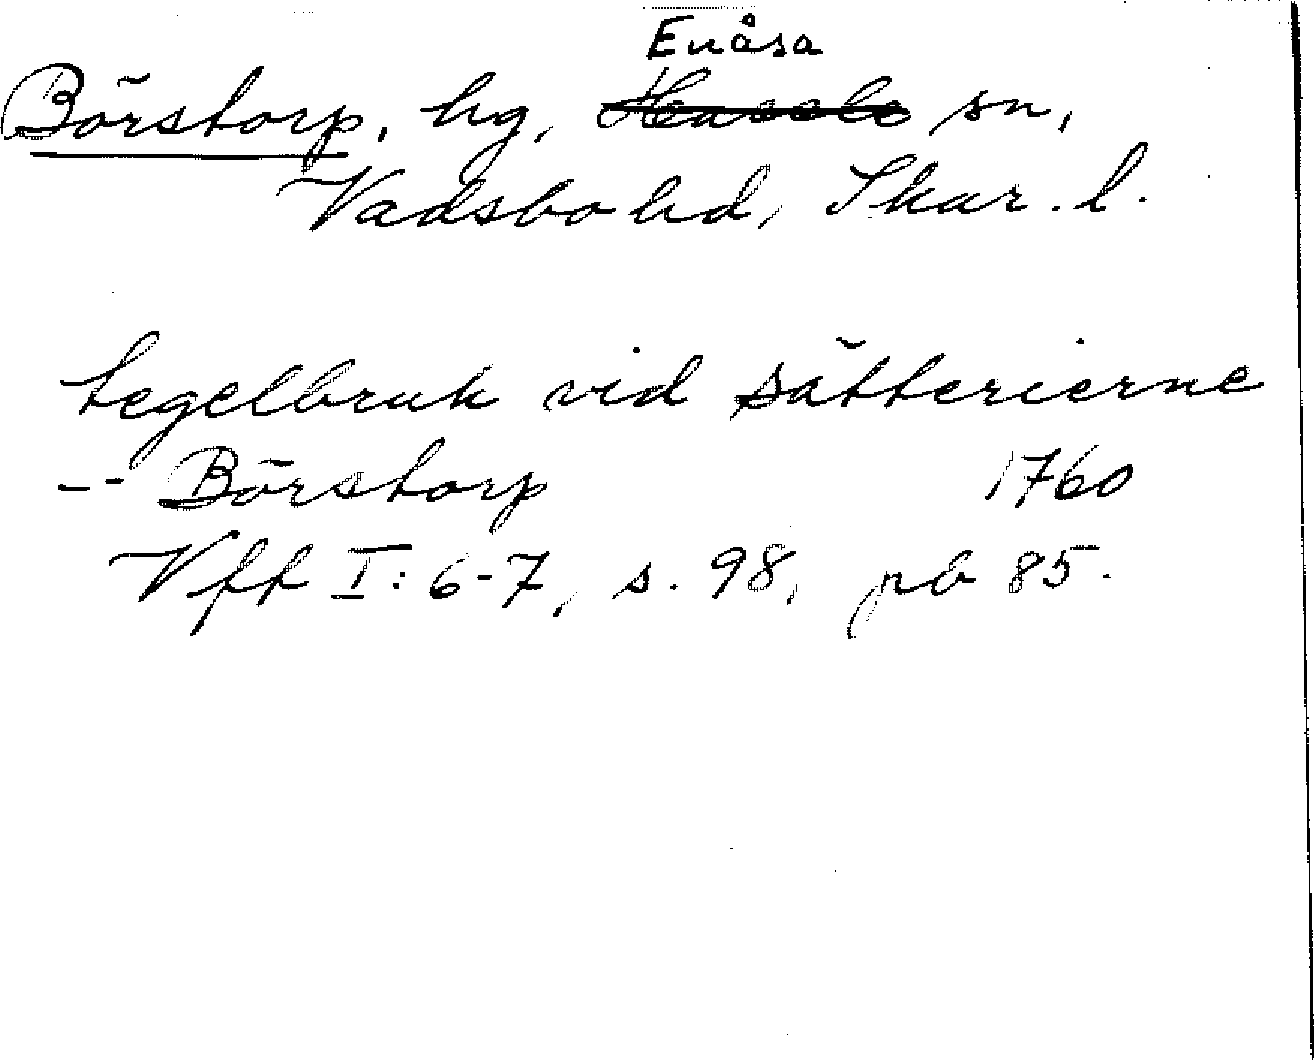 Enåsa
Börstorp, hg, Hassle sn,
Vadsbo hd, Skar. l.
tegelbruk vid sätterierne
-- Börstorp 1760
Vff I: 6-7, s. 98, pb 85.